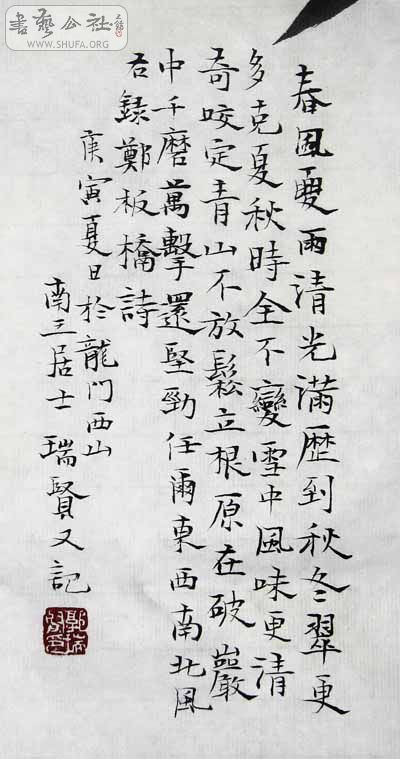 書藝公社
WWW.SHUFA.ORG
春風夏雨清光滿歷到秋冬翠更
多克夏秋時全不變雪中風味更清
奇咬定青山不放鬆立根原在破巖
中千磨萬擊還堅勁任爾東西南北風
右錄鄭板橋詩
庚寅夏日於龍门西山
南三居士瑞賢又記